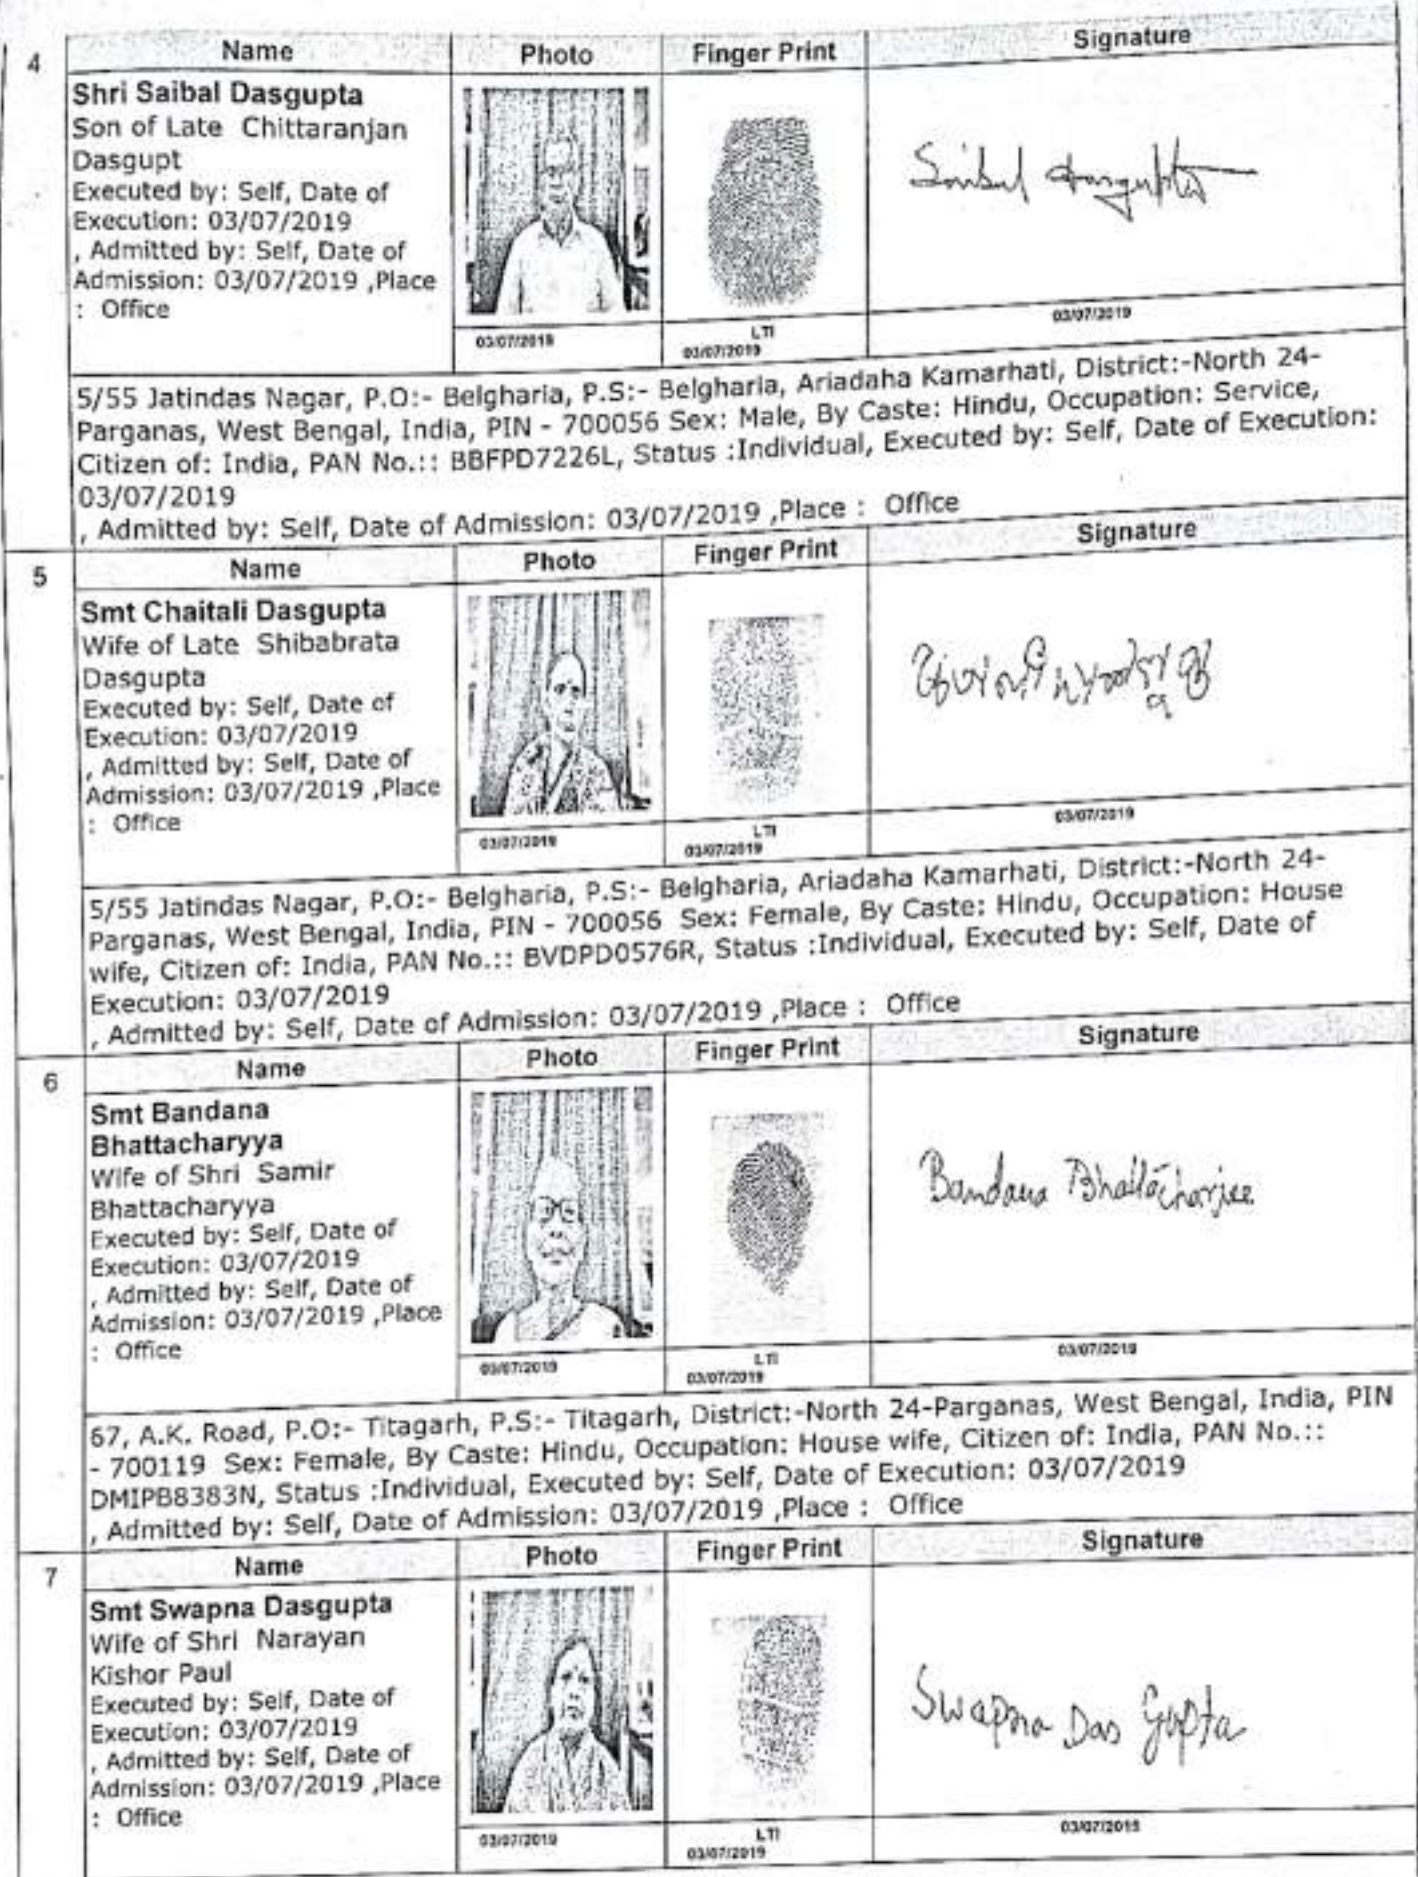 4
Name Photo Finger Print Signature
Shri Saibal Dasgupta
Son of Late Chittaranjan
Dasgupt
Executed by: Self, Date of
Execution: 03/07/2019
, Admitted by: Self, Date of
Admission: 03/07/2019 ,Place
: Office
Saibal Dasgupta
03/07/2019 LTI
03/07/2019 03/07/2019
5/55 Jatindas Nagar, P.O:- Belgharia, P.S:- Belgharia, Ariadaha Kamarhati, District:-North 24-
Parganas, West Bengal, India, PIN - 700056 Sex: Male, By Caste: Hindu, Occupation: Service,
Citizen of: India, PAN No.:: BBFPD7226L, Status :Individual, Executed by: Self, Date of Execution:
03/07/2019
, Admitted by: Self, Date of Admission: 03/07/2019 ,Place : Office
5
Name Photo Finger Print Signature
Smt Chaitali Dasgupta
Wife of Late Shibabrata
Dasgupta
Executed by: Self, Date of
Execution: 03/07/2019
, Admitted by: Self, Date of
Admission: 03/07/2019 ,Place
: Office
03/07/2019 LTI
03/07/2019 03/07/2019
5/55 Jatindas Nagar, P.O:- Belgharia, P.S:- Belgharia, Ariadaha Kamarhati, District:-North 24-
Parganas, West Bengal, India, PIN - 700056 Sex: Female, By Caste: Hindu, Occupation: House
wife, Citizen of: India, PAN No.:: BVDPD0576R, Status :Individual, Executed by: Self, Date of
Execution: 03/07/2019
, Admitted by: Self, Date of Admission: 03/07/2019 ,Place : Office
6
Name Photo Finger Print Signature
Smt Bandana
Bhattacharyya
Wife of Shri Samir
Bhattacharyya
Executed by: Self, Date of
Execution: 03/07/2019
, Admitted by: Self, Date of
Admission: 03/07/2019 ,Place
: Office
Bandana Bhattacharjee
03/07/2019 LTI
03/07/2019 03/07/2019
67, A.K. Road, P.O:- Titagarh, P.S:- Titagarh, District:-North 24-Parganas, West Bengal, India, PIN
- 700119 Sex: Female, By Caste: Hindu, Occupation: House wife, Citizen of: India, PAN No.::
DMIPB8383N, Status :Individual, Executed by: Self, Date of Execution: 03/07/2019
, Admitted by: Self, Date of Admission: 03/07/2019 ,Place : Office
7
Name Photo Finger Print Signature
Smt Swapna Dasgupta
Wife of Shri Narayan
Kishor Paul
Executed by: Self, Date of
Execution: 03/07/2019
, Admitted by: Self, Date of
Admission: 03/07/2019 ,Place
: Office
Swapna Das Gupta
03/07/2019 LTI
03/07/2019 03/07/2019